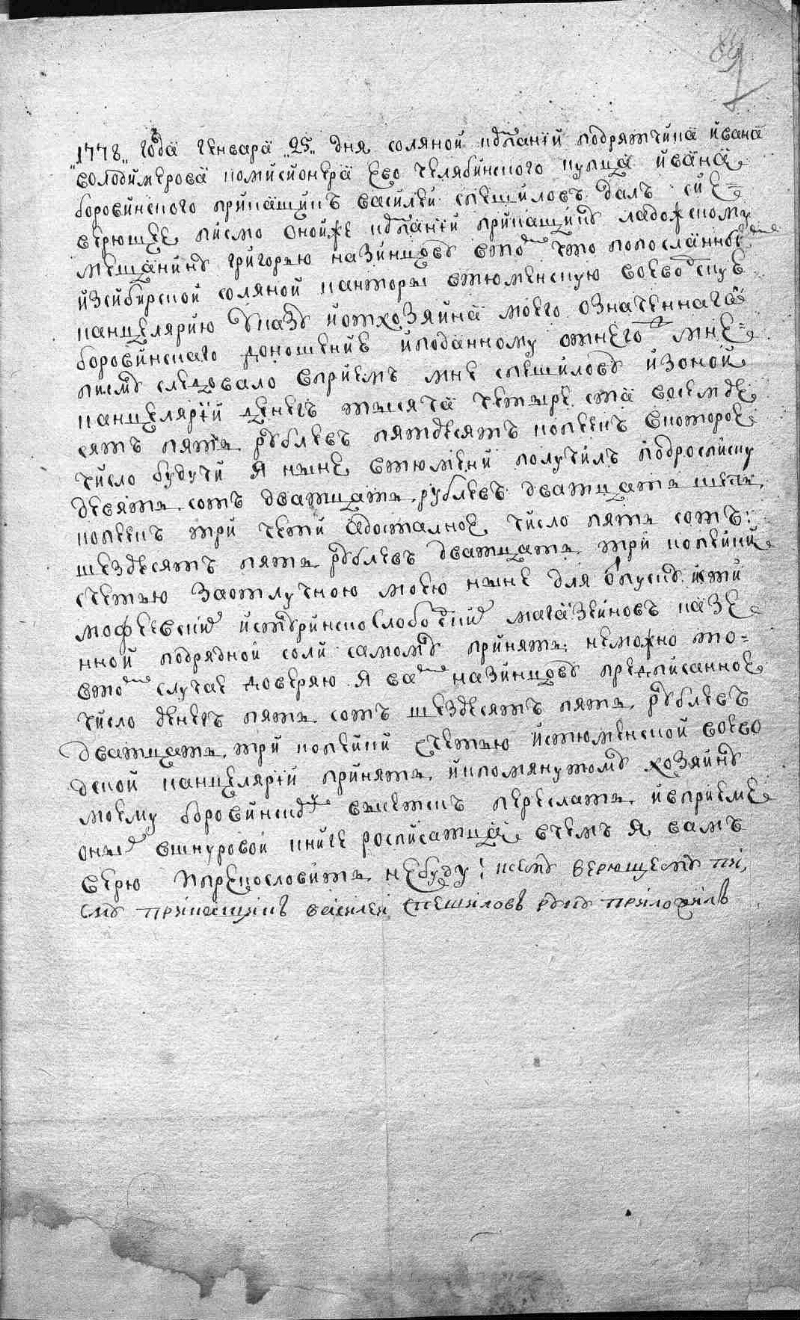 89
1778 года генваря 25 дня соляной кѡмпаніи подрятчика ивана
володимерова комисионера ево челябинского купца ивана
боровинского прикащикъ василеи спешиловъ далъ сие
верющее писмо оной же компаніи прикащику ладожскому
мещанину григорью назинцову в том что по посланному
изсибирской соляной канторы втюменскую воеводскую
канцелярию указу и отхозяина моего означеннаго
боровинскаго доношению и поданному отнего мне
писму следовало вприемъ мне спешилову изоной
канцелярии денегъ тысяча четыре ста восемде
сятъ пять рублевъ пятдесятъ копеекъ вкоторое
число будучи я ныне втюмени получилъ подросписку
девять сотъ дватцать рублевъ дватцать шесть
копеекъ три чети а досталное число пять сотъ
шездесятъ пять рублевъ дватцать три копейки
счетью заотлучкою моею ныне для отпуску
инской слободских магазейновъ казе
нной подрядной соли самому принять неможно то
втом случае доверяю я вам назинцову предписанное
число денегъ пять сотъ шездесятъ пять рублевъ
дватцать три копейки счетью истюменской воево
дской канцелярии принять, ипомянутому хозяину
моему боровинскому переслать ивприеме
оных вшнуровой книге росписатца вчемъ я вамъ
верю и прецословить небуду / ксему верющему пи
сму прикащикъ василей спешиловъ руку приложилъ